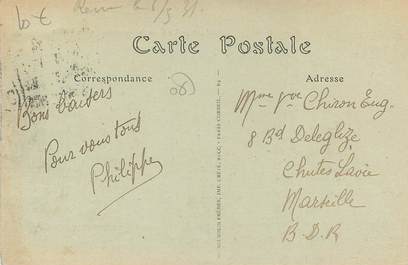 Carte Postale
Correspondance
Adresse
Bons baisers
Pour vous tous
Philippe
Mme Vve Chiron Eug.
8 Bd Deleglize
Chutes Lavie
Marseille
B.D.R